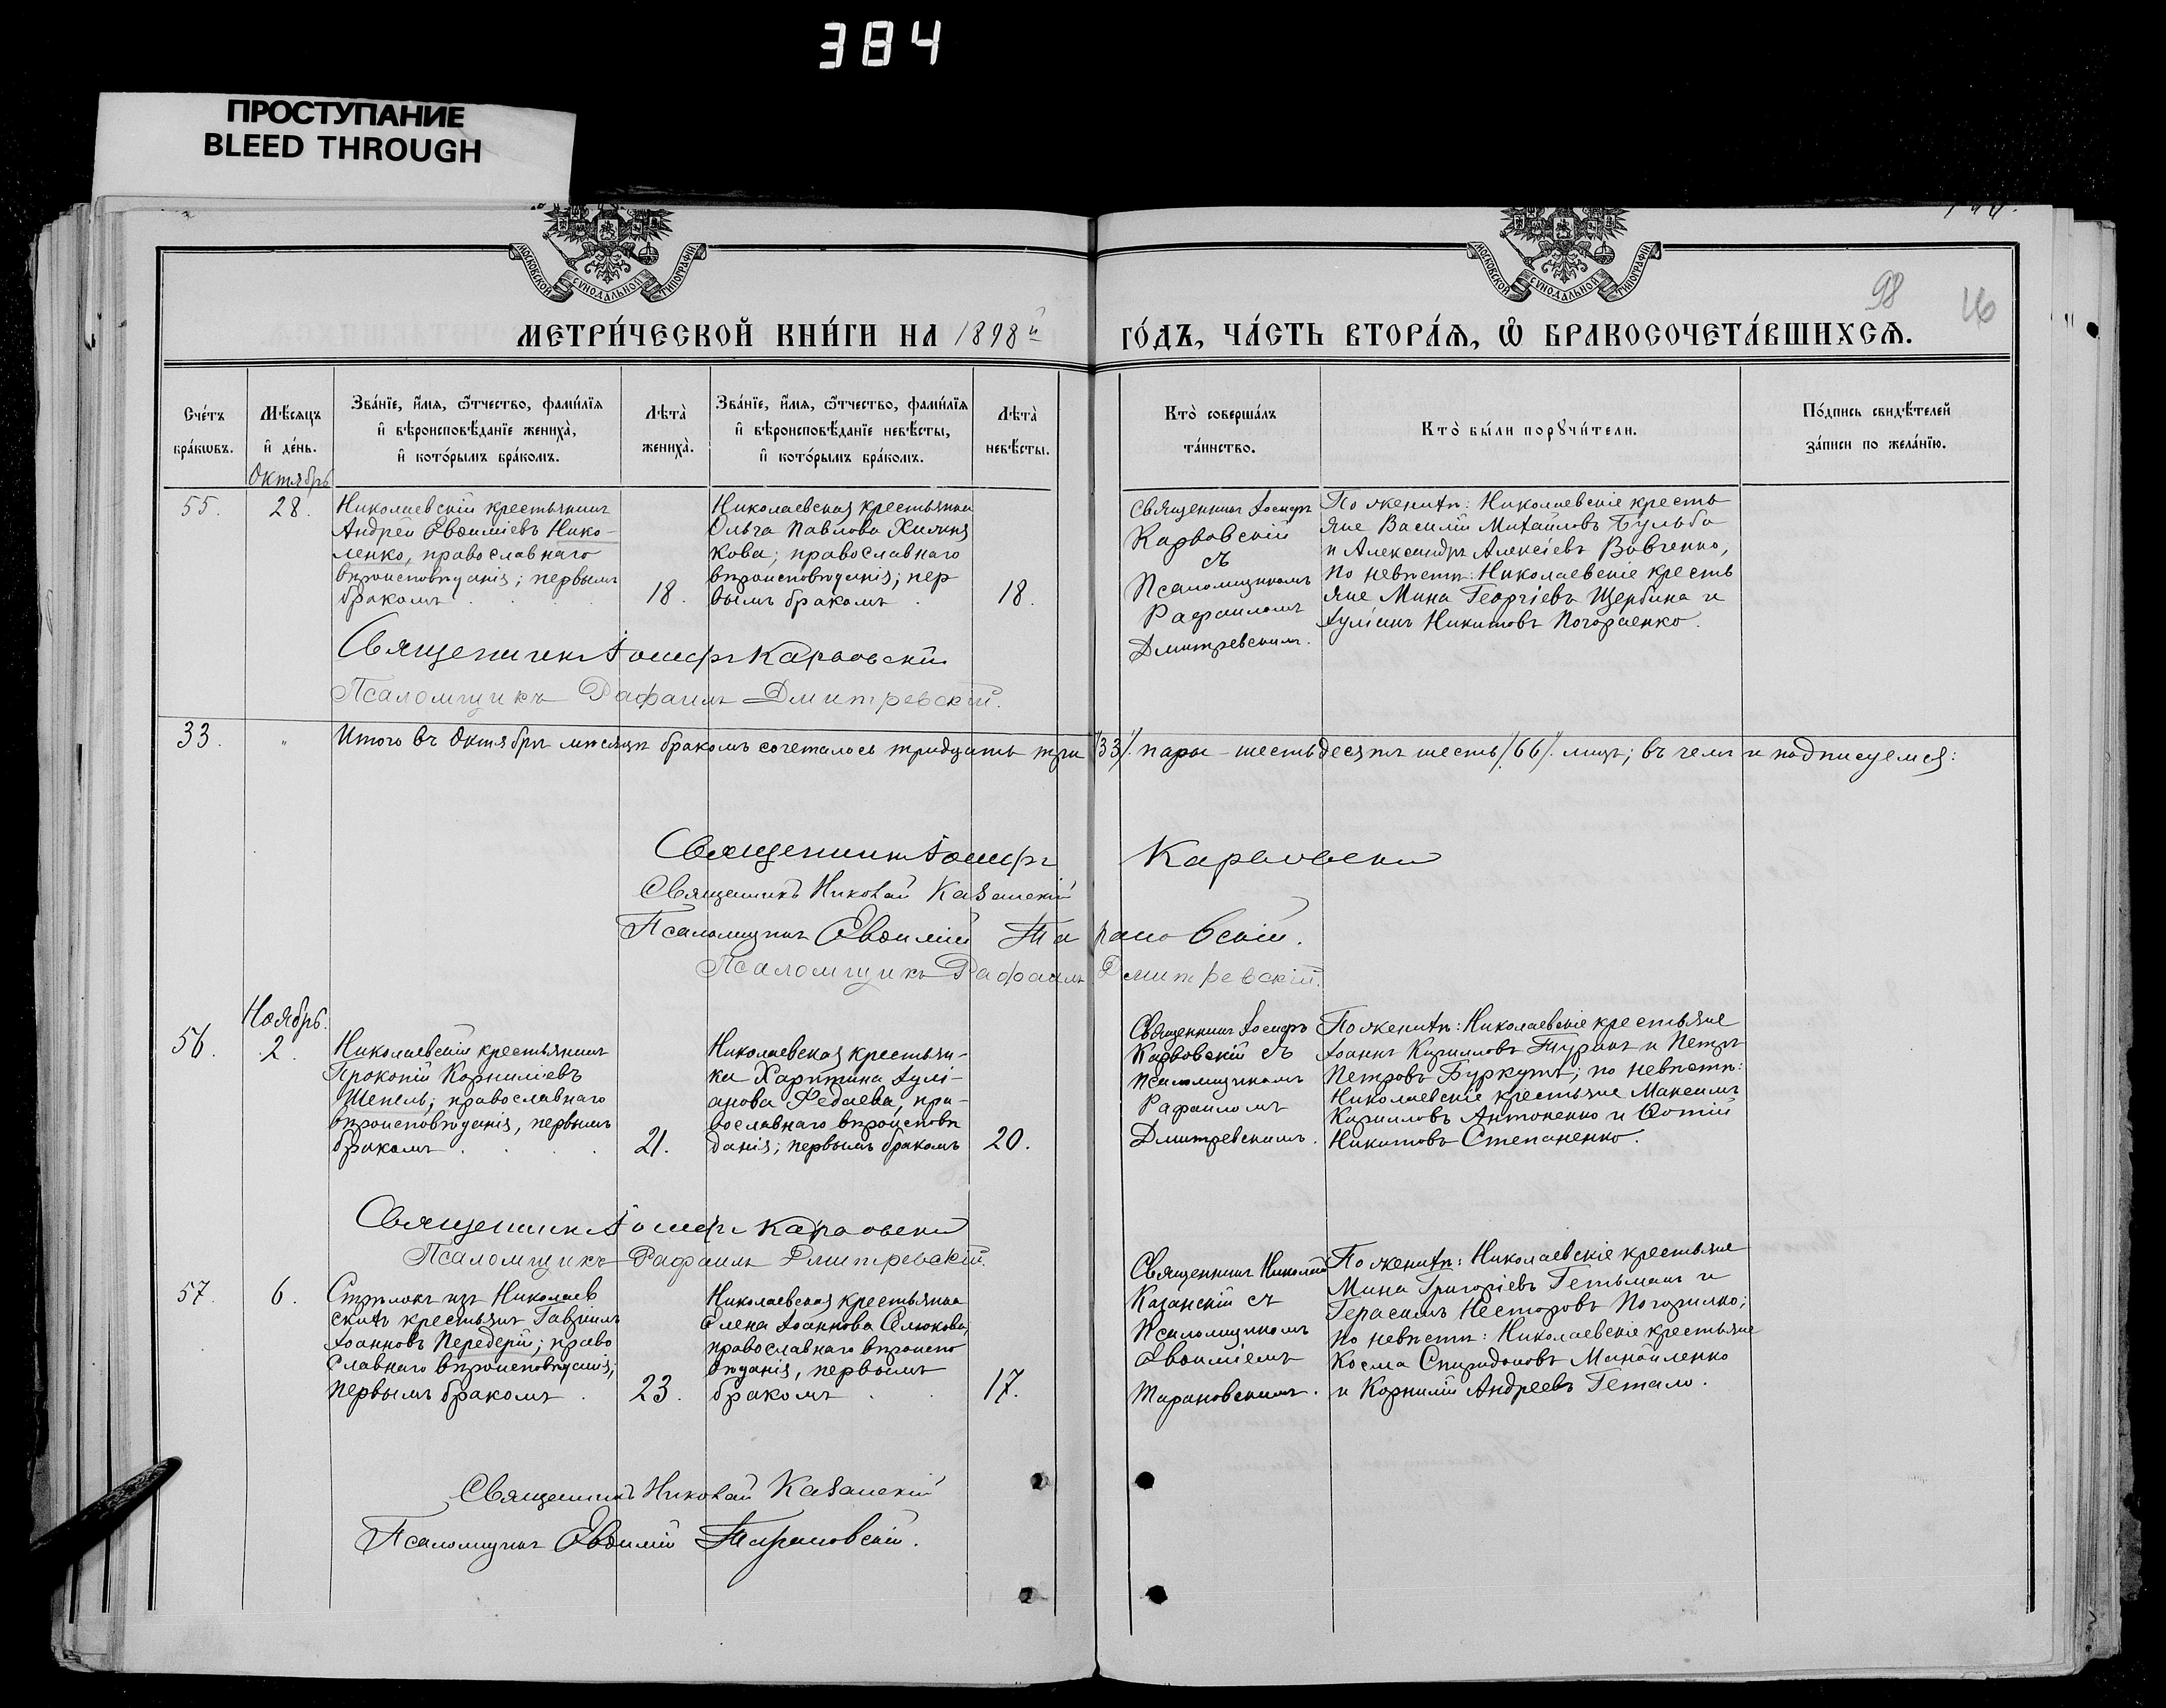 384
ПРОСТУПАНИЕ
BLEED THROUGH
МОСКОВСКОЙ СѴНОДАЛЬНОЙ ТИПОГРАФІИ
МОСКОВСКОЙ СѴНОДАЛЬНОЙ ТИПОГРАФІИ
98
МЕТРИ́ЧЕСКОЙ КНИ́ГИ НА 1898й ГО́ДЪ, ЧА́СТЬ ВТОРА́Я, Ѽ БРАКОСОЧЕТА́ВШИХСЯ.
Сче́тъ
бра́кѡвъ.
Мѣ́сяцъ
и҆ де́нь.
Зва́нїе, и҆́мя, ѻ҆́тчество, фами́лїя
и҆ вѣроисповѣ́данїе жениха̀,
и҆ кото́рымъ бра́комъ.
Лѣта̀
жениха̀.
Зва́нїе, и҆́мя, ѻ҆́тчество, фами́лїя
и҆ вѣроисповѣ́данїе невѣ́сты,
и҆ кото́рымъ бра́комъ.
Лѣта̀
невѣ́сты.
Кто̀ соверша́лъ
та́инство.
Кто̀ бы́ли порꙋчи́тели.
По́дпись свидѣ́телей
за́писи по жела́нїю.
Октябрь
55.
28.
Николаевскій крестьянинъ
Андрей Евѳиміевъ Нико-
ленко, православнаго
вѣроисповѣданія; первымъ
бракомъ
18.
Николаевская крестьянка
Ольга Павлова
кова; православнаго
вѣроисповѣданія; пер
вымъ бракомъ
18.
Священникъ Іосифъ
Карвовскій
съ
Псаломщикомъ
Рафаиломъ
Дмитревскимъ.
По женихѣ: Николаевскіе кресть
яне Василій Михайловъ Бульба
и Александръ Алексіевъ Вовченко,
по невѣстѣ: Николаевскіе кресть
яне Мина Георгіевъ Щербина и
Іуліанъ Никитовъ Погорѣенко.
Священникъ Іосифъ Карвовскій
Псаломщикъ Рафаилъ Дмитревскій.
33. " Итого въ Октябрѣ мѣсяцѣ бракомъ сочеталось тридцать три /33/. пары – шестьдесятъ шесть /66/. лицъ; въ чемъ и подписуемся:
Священникъ Іосифъ Карвовскій
Священникъ Николай Казанскій
Псаломщикъ Евѳимій Тарановскій.
Псаломщикъ Рафаилъ Дмитревскій.
Ноябрь.
56.
2.
Николаевскій крестьянинъ
Прокопій Корниліевъ
Шепель; православнаго
вѣроисповѣданія, первымъ
бракомъ
21.
Николаевская крестьян-
ка Харитина Іулі-
анова Федаева, пра-
вославнаго вѣроисповѣ
данія; первымъ бракомъ
20.
Священникъ Іосифъ
Карвовскій съ
псаломщикомъ
Рафаиломъ
Дмитревскимъ.
По женихѣ: Николаевскіе крестьяне
Іоаннъ Кирилловъ Туранъ и Петръ
Петровъ Буркутъ; по невѣстѣ:
Николаевскіе крестьяне Максимъ
Кирилловъ Антоненко и Фотій
Никитовъ Степаненко.
Священникъ Іосифъ Карвовскій
Псаломщикъ Рафаилъ Дмитревскій.
57.
6.
Стрѣлокъ изъ Николаев
скихъ крестьянъ Гавріилъ
Іоанновъ Передерій; право
славнаго вѣроисповѣданія;
первымъ бракомъ
23.
Николаевская крестьянка
Елена Іоаннова Селюкова,
православнаго вѣроиспо
вѣданія, первымъ
бракомъ
17.
Священникъ Николай
Казанскій съ
Псаломщикомъ
Евѳиміемъ
Тарановскимъ.
По женихѣ: Николаевскіе крестьяне
Мина Григоріевъ Гетьманъ и
Герасимъ Несторовъ Погорилко;
по невѣстѣ: Николаевскіе крестьяне
Косма Спиридоновъ Манойленко
и Корнилій Андреевъ Гетало.
Священникъ Николай Казанскій
Псаломщикъ Евѳимій Тарановскій.